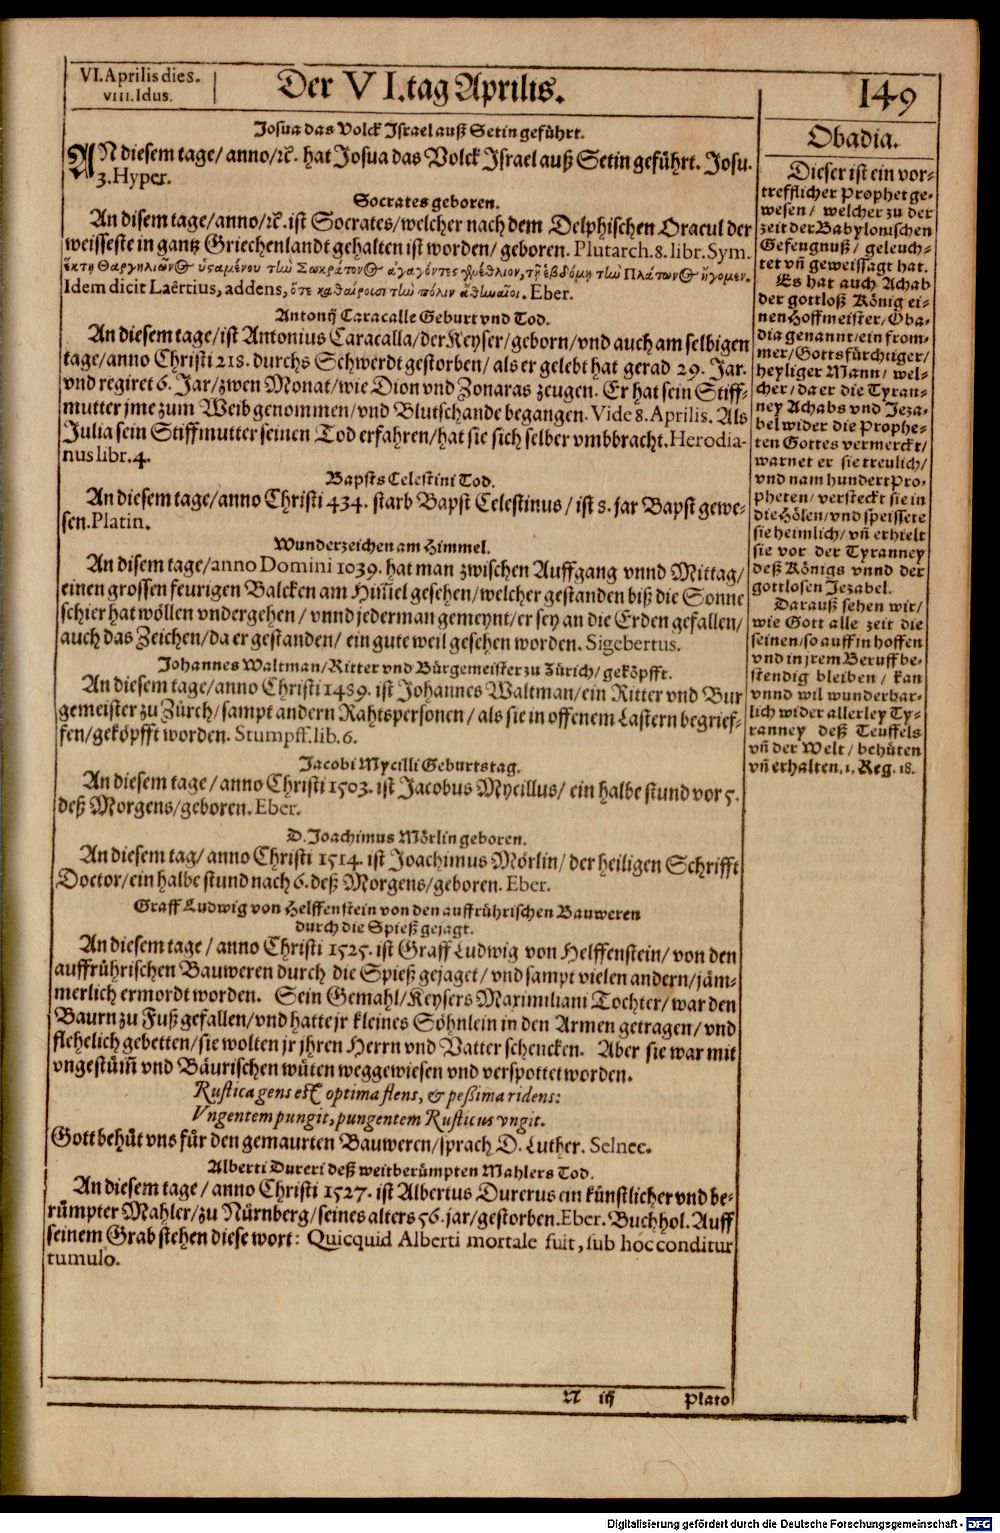 VI. Aprilis dies.
VIII. Idus.
Der VI. tag Aprilis.
149
Josua das Volck Israel auß Setin geführt.
AN diesem tage/ anno/ꝛc. hat Josua das Volck Israel auß Setin geführt. Josu.
3. Hyper.
Socrates geboren.
An disem tage/anno/ꝛc. ist Socrates/welcher nach dem Delphischen Oracul der
weisseste in gantz Griechenlandt gehalten ist worden/ geboren. Plutarch. 8. libr. Sym.
ἕκτῃ Θαργηλιῶνος
Idem dicit Laërtius, addens, Eber.
Antonij Caracalle Geburt vnd Tod.
An diesem tage/ist Antonius Caracalla/der Keyser/geborn/vnd auch am selbigen
tage/anno Christi 218. durchs Schwerdt gestorben/ als er gelebt hat gerad 29. Jar.
vnd regiret 6. Jar/zwen Monat/wie Dion vnd Zonaras zeugen. Er hat sein Stiff-
mutter jme zum Weib genommen/vnd Blutschande begangen. Vide 8. Aprilis. Als
Julia sein Stiffmutter seinen Tod erfahren/hat sie sich selber vmbbracht. Herodia-
nus libr. 4.
Bapsts Celestini Tod.
An diesem tage/anno Christi 434. starb Bapst Celestinus/ ist 8. jar Bapst gewe-
sen. Platin.
Wunderzeichen am Himmel.
An disem tage/anno Domini 1039. hat man zwischen Auffgang vnnd Mittag/
einen grossen feurigen Balcken am Him̄el gesehen/welcher gestanden biß die Sonne
schier hat wöllen vndergehen/ vnnd jederman gemeynt/er sey an die Erden gefallen/
auch das Zeichen/da er gestanden/ ein gute weil gesehen worden. Sigebertus.
Johannes Waltman/Ritter vnd Bürgemeister zu Zürich/geköpfft.
An diesem tage/anno Christi 1489. ist Johannes Waltman/ein Ritter vnd Bur
gemeister zu Zürch/sampt andern Rahtspersonen/ als sie in offenem Lastern begrief-
fen/geköpfft worden. Stumpff. lib. 6.
Jacobi Mycilli Geburtstag.
An diesem tage/ anno Christi 1503. ist Jacobus Mycillus/ ein halbe stund vor 5.
deß Morgens/geboren. Eber.
D. Joachimus Mörlin geboren.
An diesem tag/ anno Christi 1514. ist Joachimus Mörlin/ der heiligen Schrifft
Doctor/ein halbe stund nach 6. deß Morgens/geboren. Eber.
Graff Ludwig von Helffenstein von den auffrührischen Bauweren
durch die Spieß gejagt.
An diesem tage/ anno Christi 1525. ist Graff Ludwig von Helffenstein/ von den
auffrührischen Bauweren durch die Spieß gejaget/ vnd sampt vielen andern/jäm-
merlich ermordt worden. Sein Gemahl/Keysers Maximiliani Tochter/ war den
Baurn zu Fuß gefallen/vnd hatte jr kleines Söhnlein in den Armen getragen/ vnd
flehelich gebetten/sie wolten jr jhren Herrn vnd Vatter schencken. Aber sie war mit
vngestüm̄ vnd Bäurischen wüten weggewiesen vnd verspottet worden.
Rustica gens est optima flens, & peßima ridens:
Vngentem pungit, pungentem Rusticus vngit.
Gott behüt vns für den gemaurten Bauweren/sprach D. Luther. Selnec.
Alberti Dureri deß weitberümpten Mahlers Tod.
An diesem tage/ anno Christi 1527. ist Albertus Durerus ein künstlicher vnd be-
rümpter Mahler/zu Nürnberg/ seines alters 56. jar/gestorben. Eber. Buchhol. Auff
seinem Grab stehen diese wort: Quicquid Alberti mortale fuit, sub hoc conditur
tumulo.
N iij
Plato
Obadia.
Dieser ist ein vor-
trefflicher Prophet ge-
wesen/ welcher zu der
zeit der Babylonischen
Gefengnuß/ geleuch-
tet vn̄ geweissagt hat.
Es hat auch Achab
der gottloß König ei-
nen Hoffmeister/Oba-
dia genannt/ein from-
mer/Gottsfürchtiger/
heyliger Mann/ wel-
cher/da er die Tyran-
ney Achabs vnd Jeza-
bel wider die Prophe-
ten Gottes vermerckt/
warnet er sie treulich/
vnd nam hundert Pro-
pheten/ versteckt sie in
die Hölen/vnd speissete
sie heimlich/ vn̄ erhielt
sie vor der Tyranney
deß Königs vnnd der
gottlosen Jezabel.
Darauß sehen wir/
wie Gott alle zeit die
seinen/so auff in hoffen
vnd in jrem Beruff be-
stendig bleiben/ kan
vnnd wil wunderbar-
lich wider allerley Ty-
ranney deß Teuffels
vn̄ der Welt/ behüten
vn̄ erhalten. 1. Reg. 18.
Digitalisierung gefördert durch die Deutsche Forschungsgemeinschaft - DFG